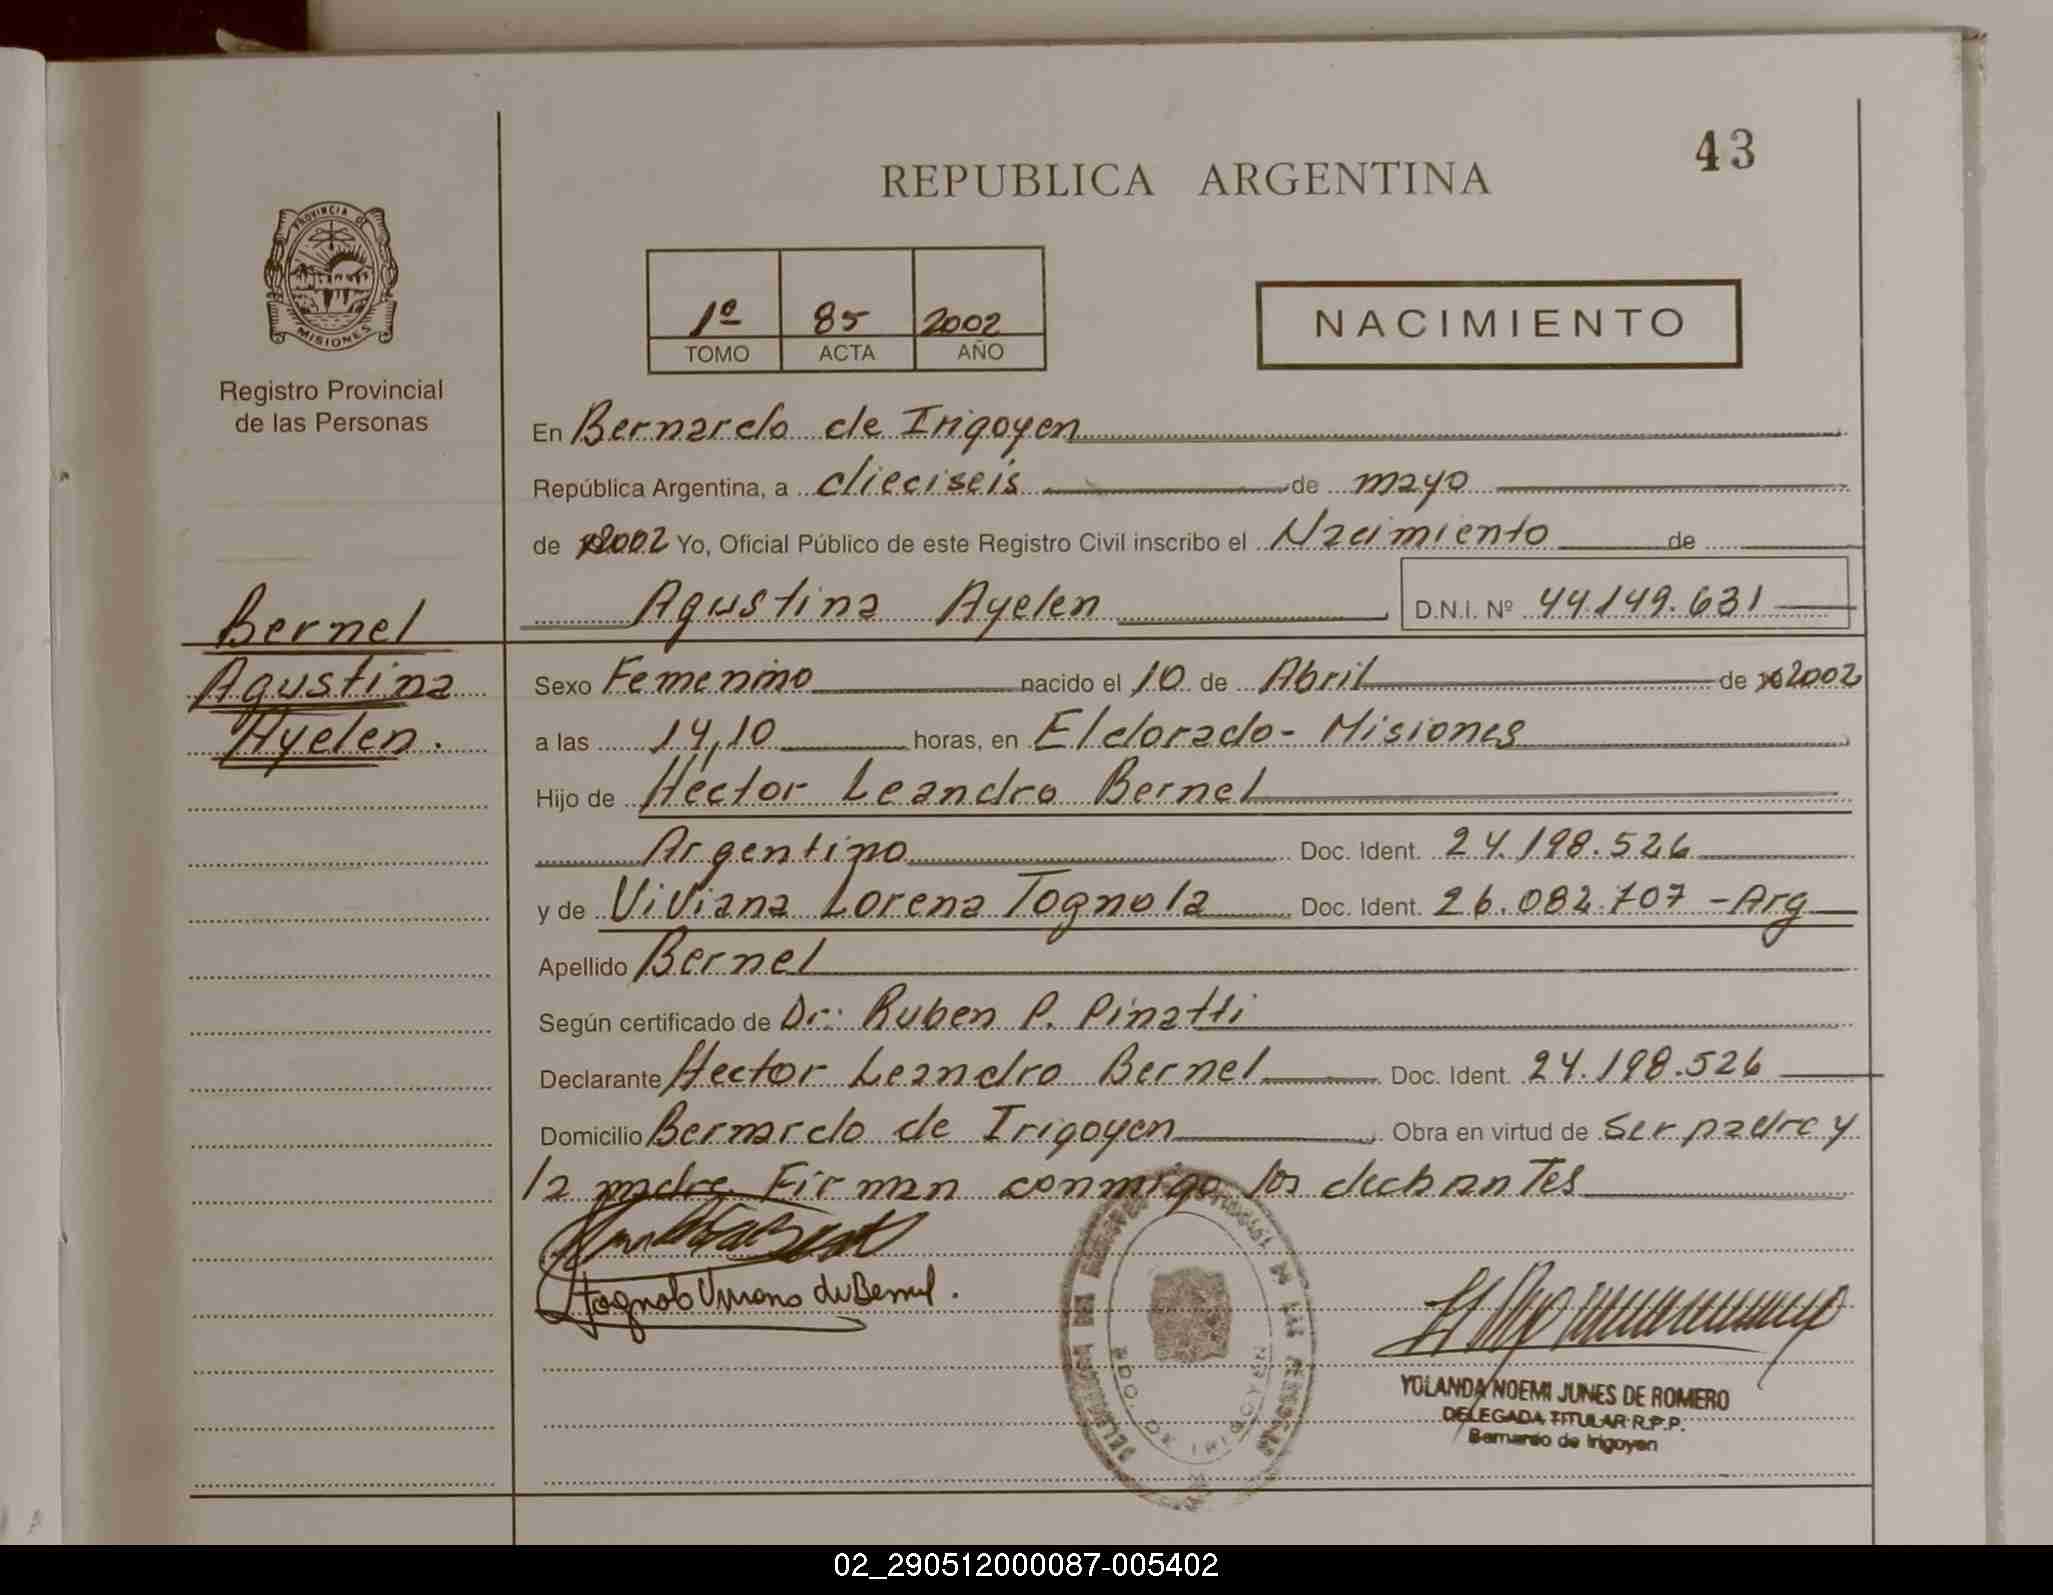 43
REPUBLICA ARGENTINA
PROVINCIA DE
MISIONES
Registro Provincial
de las Personas
1º 85 2002
TOMO ACTA AÑO
NACIMIENTO
En Bernardo de Irigoyen
República Argentina, a dieciseis de mayo
de 2002 Yo, Oficial Público de este Registro Civil inscribo el Nacimiento de
Agustina Ayelen D.N.I. Nº 44.149.631
Bernel
Agustina
Ayelen.
Sexo Femenino nacido el 10 de Abril de 2002
a las 14,10 horas, en Eldorado - Misiones
Hijo de Hector Leandro Bernel
Argentino Doc. Ident. 24.198.526
y de Viviana Lorena Tognola Doc. Ident. 26.082.707 - Arg
Apellido Bernel
Según certificado de Dr: Ruben P. Pinatti
Declarante Hector Leandro Bernel Doc. Ident. 24.198.526
Domicilio Bernardo de Irigoyen Obra en virtud de ser padre y
la madre. Firman conmigo los declarantes
Tognola Viviana de Bernel.
BDO. DE IRIGOYEN
YOLANDA NOEMI JUNES DE ROMERO
DELEGADA TITULAR R.P.P.
Bernardo de Irigoyen
02_290512000087-005402